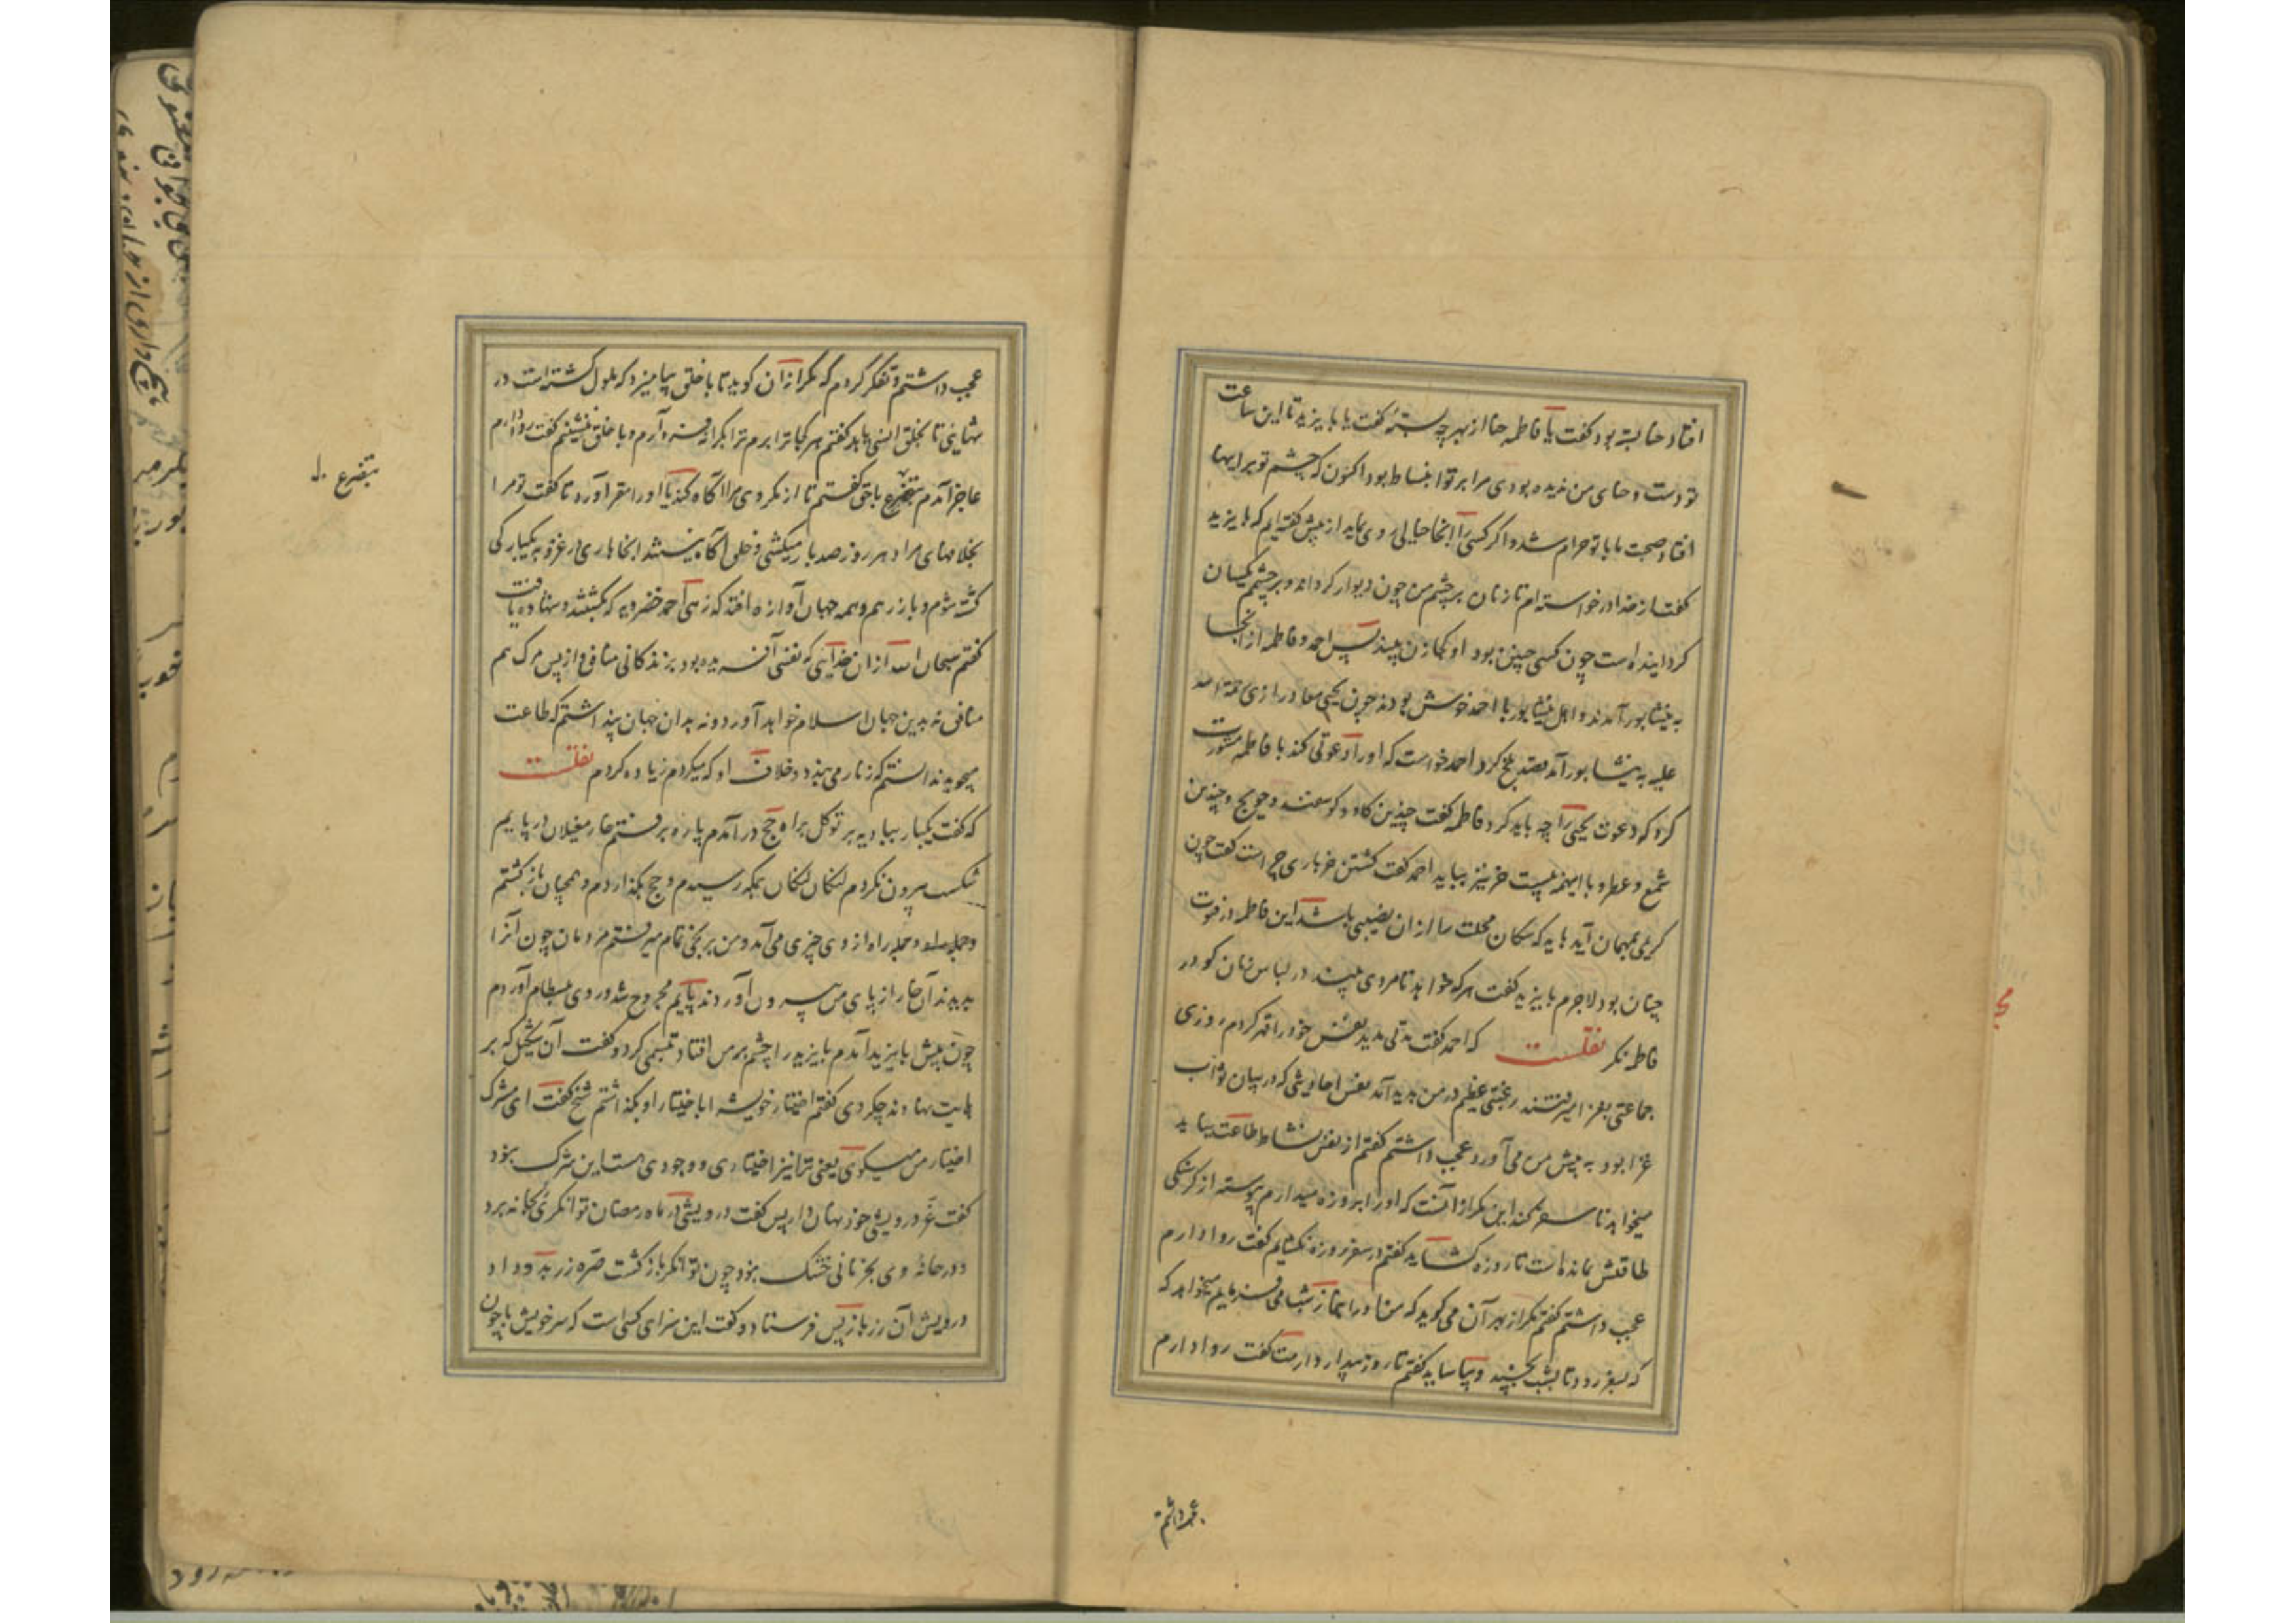 افتاد حنا بسته بود گفت یا فاطمه حنا از بهر چه بستهٔ گفت یا بایزید تا این ساعت
تو دست و حنای من ندیده بودی مرا بر تو انبساط بود اکنون که چشم تو بر اینها
افتاد صحبت ما با تو حرام شد و اگر کسی را اینجا خیالی روی نماید از پیش گفته‌ایم که بایزید
گفت از خدا درخواسته‌ام تا زنان بر چشم من چون دیوار گرداند و بر چشم یکسان
گردانیده است چون کسی چنین بود او کجا زن بیند پس احمد و فاطمه از آنجا
به نیشابور آمدند و اهل نیشابور با احمد خوش بودند چون یحیی معاذ رازی رحمة الله
علیه به نیشابور آمد قصد بلخ کرد احمد خواست که او را دعوتی کند با فاطمه مشورت
کرد که دعوت یحیی را چه باید کرد فاطمه گفت چندین گاو و گوسفند و حویج و چندین
شمع و عطر و با اینهمه بیست خر نیز بباید احمد گفت کشتن خر باری چراست گفت چون
کریمی بمهمان آید باید که سگان محلت را از آن نصیبی باشد این فاطمه در فتوت
چنان بود لاجرم بایزید گفت هر که خواهد تا مردی بیند در لباس زنان گو در
فاطمه نگر نقلست که احمد گفت مدتی مدید نفس خود را قهر کردم روزی
جماعتی بغزا میرفتند رغبتی عظیم در من پدید آمد نفس احادیثی که در بیان ثواب
غزا بود به پیش من می آورد عجب داشتم گفتم از نفس نشاط طاعت بیاید
میخواهد تا سفر کند این مکر از آنست که او را بروزه میدارم پیوسته از گرسنگی
طاقتش نمانده است تا روزه گشاید گفتم در سفر روزه نگشایم گفت روا دارم
عجب داشتم گفتم مگر از بهر آن می گوید که من او را بنماز شب می فرمایم میخواهد که
که بسفر رود تا بشب بخسپد و بیاساید گفتم تا روز بیدار دارمت گفت روا دارم
عجب داشتم
عجب داشتم و تفکر کردم که مگر از آن گوید تا با خلق بیامیزد که ملول گشته است در
تنهایی تا بخلق انسی یابد گفتم هر کجا ترا برم ترا بکرانه فرود آرم و با خلق ننشینم گفت روا دارم
عاجز آمدم بتضرع باحق گفتم تا از مکر وی مرا آگاه کند یا او را مقر آورد تا گفت تو مرا
بخلافهای مراد هر روز صد بار میکشی و خلق آگاه نیستند آنجا باری در غزو به یکبارگی
کشته شوم و باز رهم و همه جهان آوازه افتد که زهی احمد خضرویه که بکشتند و شهادت یافت
گفتم سبحان الله از آن خدایی که نفسی آفریده بود بزندگانی منافق و از پس مرگ هم
منافق نه بدین جهان اسلام خواهد آورد و نه بدان جهان پنداشتم که طاعت
میجوید ندانستم که زنار می بندد و خلاف او که میکردم زیاده کردم نقلست
که گفت یکبار ببادیه بر توکل براه حج درآمدم پاره برفتم خار مغیلان در پایم
شکست بیرون نکردم لنگان لنگان بمکه رسیدم و حج بگذاردم و همچنان باز گشتم
و جمله راه از وی چیزی می آمد و من برنجی تمام میرفتم مردمان چون آنرا
بدیدند آن خار از پای من بیرون آوردند پایم مجروح شد و روی ببسطام آوردم
چون پیش بایزید آمدم بایزید را چشم بر من افتاد تبسمی کرد و گفت آن شکیل که بر
پایت نهادند چکردی گفتم اختیار خویش را با اختیار او بگذاشتم شیخ گفت ای مشرک
اختیار من میگوئی یعنی ترا نیز اختیاری و وجودی هست این شرک نبود
گفت عز درویشی خود نهان دار پس گفت درویشی در ماه رمضان توانگری بخانه برد
و در خانهٔ وی بجز نانی خشک نبود چون توانگر باز گشت صره زر بدو داد
درویش آن زر باز پس فرستاد و گفت این سزای کسی است که سر خویش با چون
بتضرع